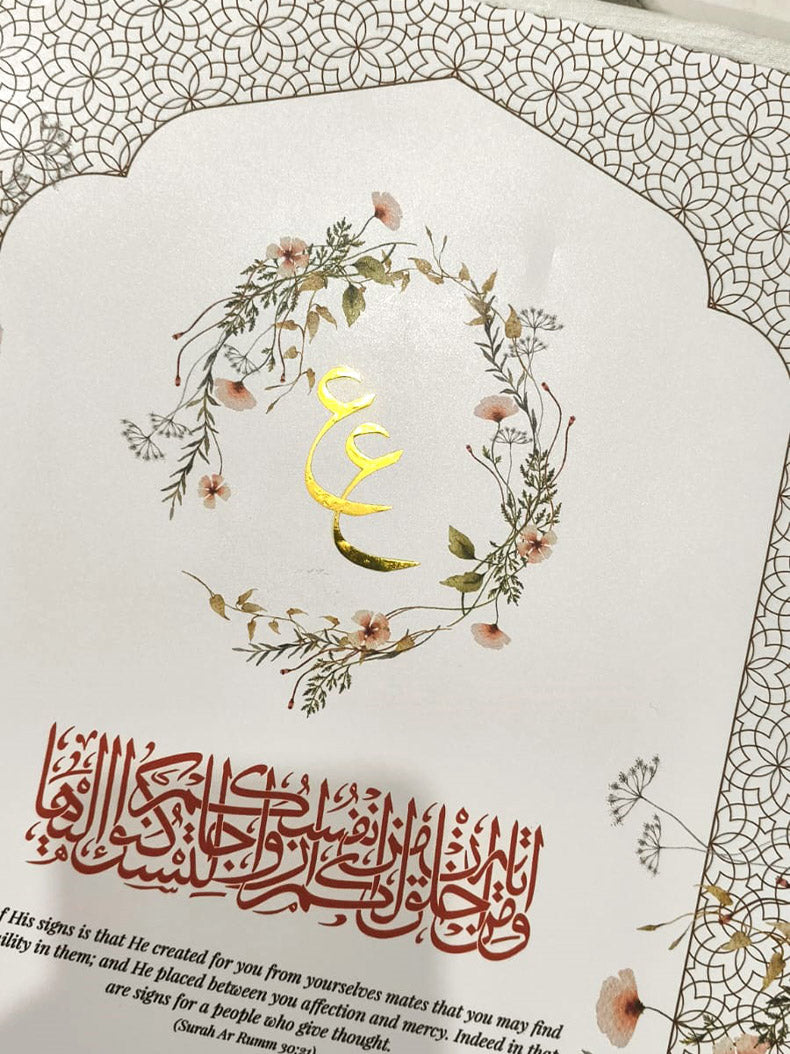 ع ع
ومن اياته ان خلق لكم من انفسكم ازواجا لتسكنوا اليها
f His signs is that He created for you from yourselves mates that you may find
ility in them; and He placed between you affection and mercy. Indeed in that
are signs for a people who give thought.
(Surah Ar Rumm 30:21)